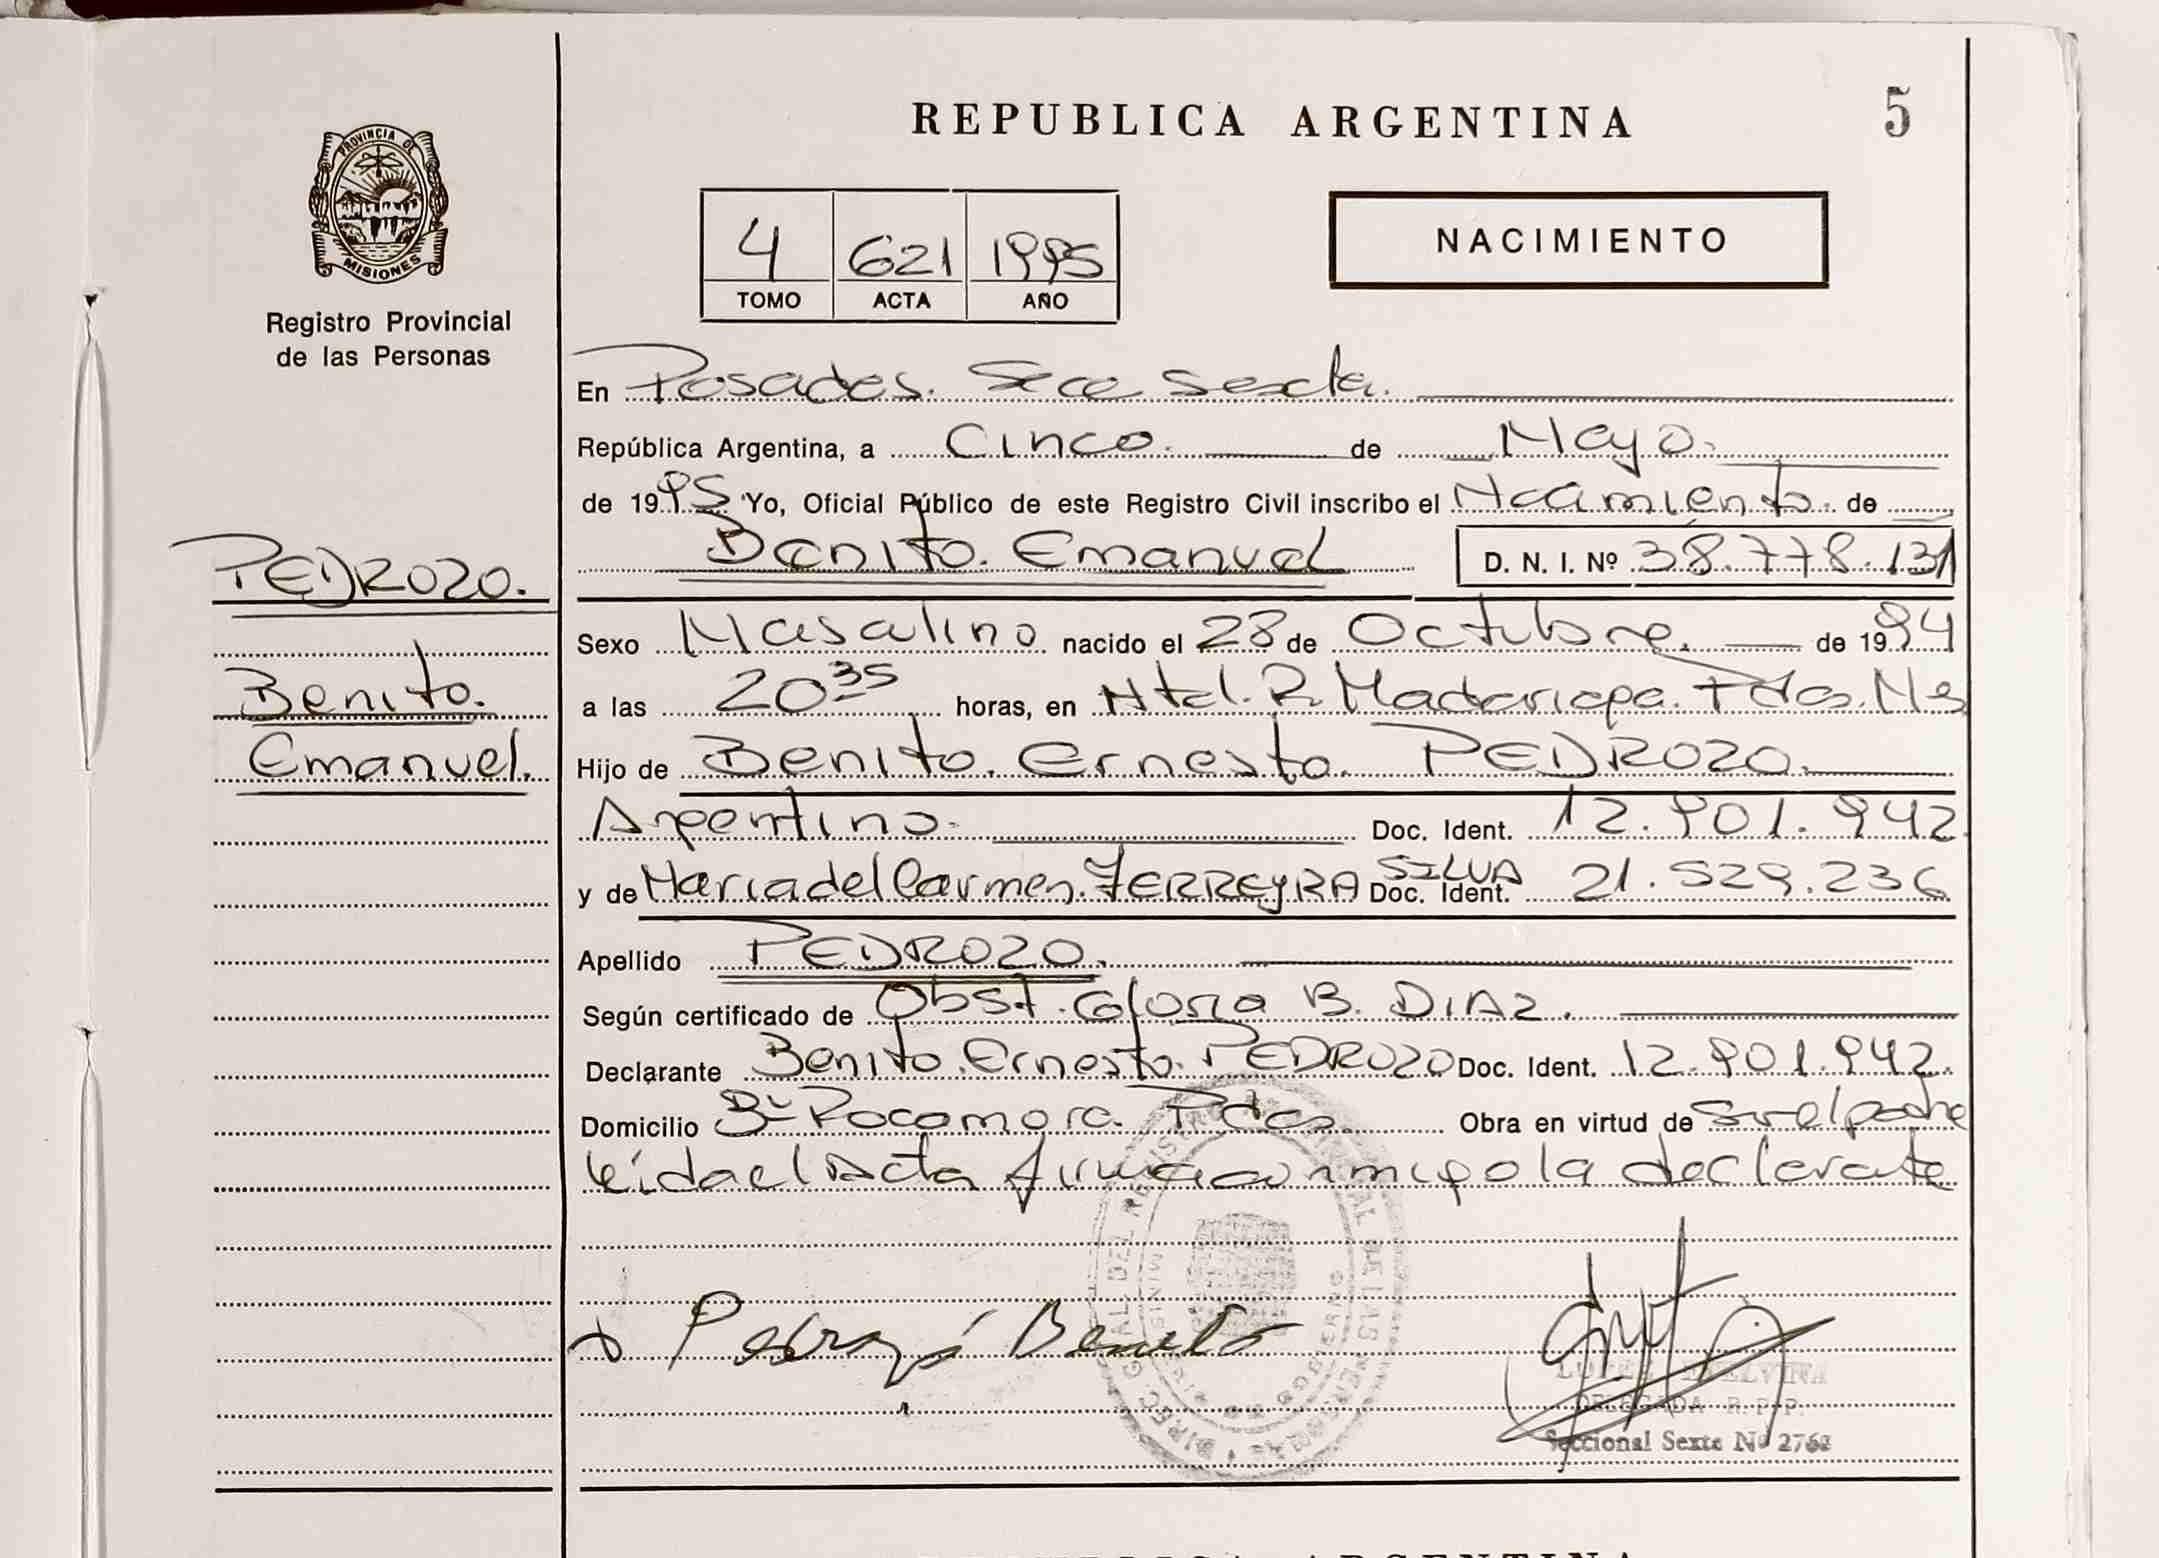 REPUBLICA ARGENTINA
5
PROVINCIA DE
MISIONES
Registro Provincial
de las Personas
4 621 1995
TOMO ACTA AÑO
NACIMIENTO
En Posadas. Secc Sexta.
República Argentina, a Cinco. de Mayo.
de 1995 Yo, Oficial Público de este Registro Civil inscribo el Nacimiento. de
Benito. Emanuel D. N. I. Nº 38.778.131
PEDROZO.
Benito.
Emanuel.
Sexo Masculino nacido el 28 de Octubre. de 1994
a las 20 35 horas, en Htal. R. Madariaga. Pdas. Ms
Hijo de Benito. Ernesto. PEDROZO.
Argentino. Doc. Ident. 12.901.942
y de Maria del Carmen. FERREYRA SILVA Doc. Ident. 21.529.236
Apellido PEDROZO.
Según certificado de Obst. Gloria B. DIAZ.
Declarante Benito. Ernesto. PEDROZO Doc. Ident. 12.901.942.
Domicilio Bº Rocamora. Pdas Obra en virtud de ser el padre
leida el Acta firma conmigo la declarante
Pedrozo Benito
DELEGADA R.P.P.
Seccional Sexta Nº 2768